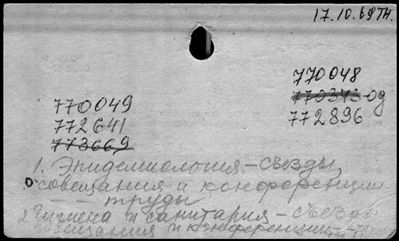 17.10.69 тн.
770048
770049
770373 од
772641
772896
773669
1. Эпидемиология – съезды,
совещания и конференции
– труды
2. Гигиена и санитария – съезды
совещания и конференции